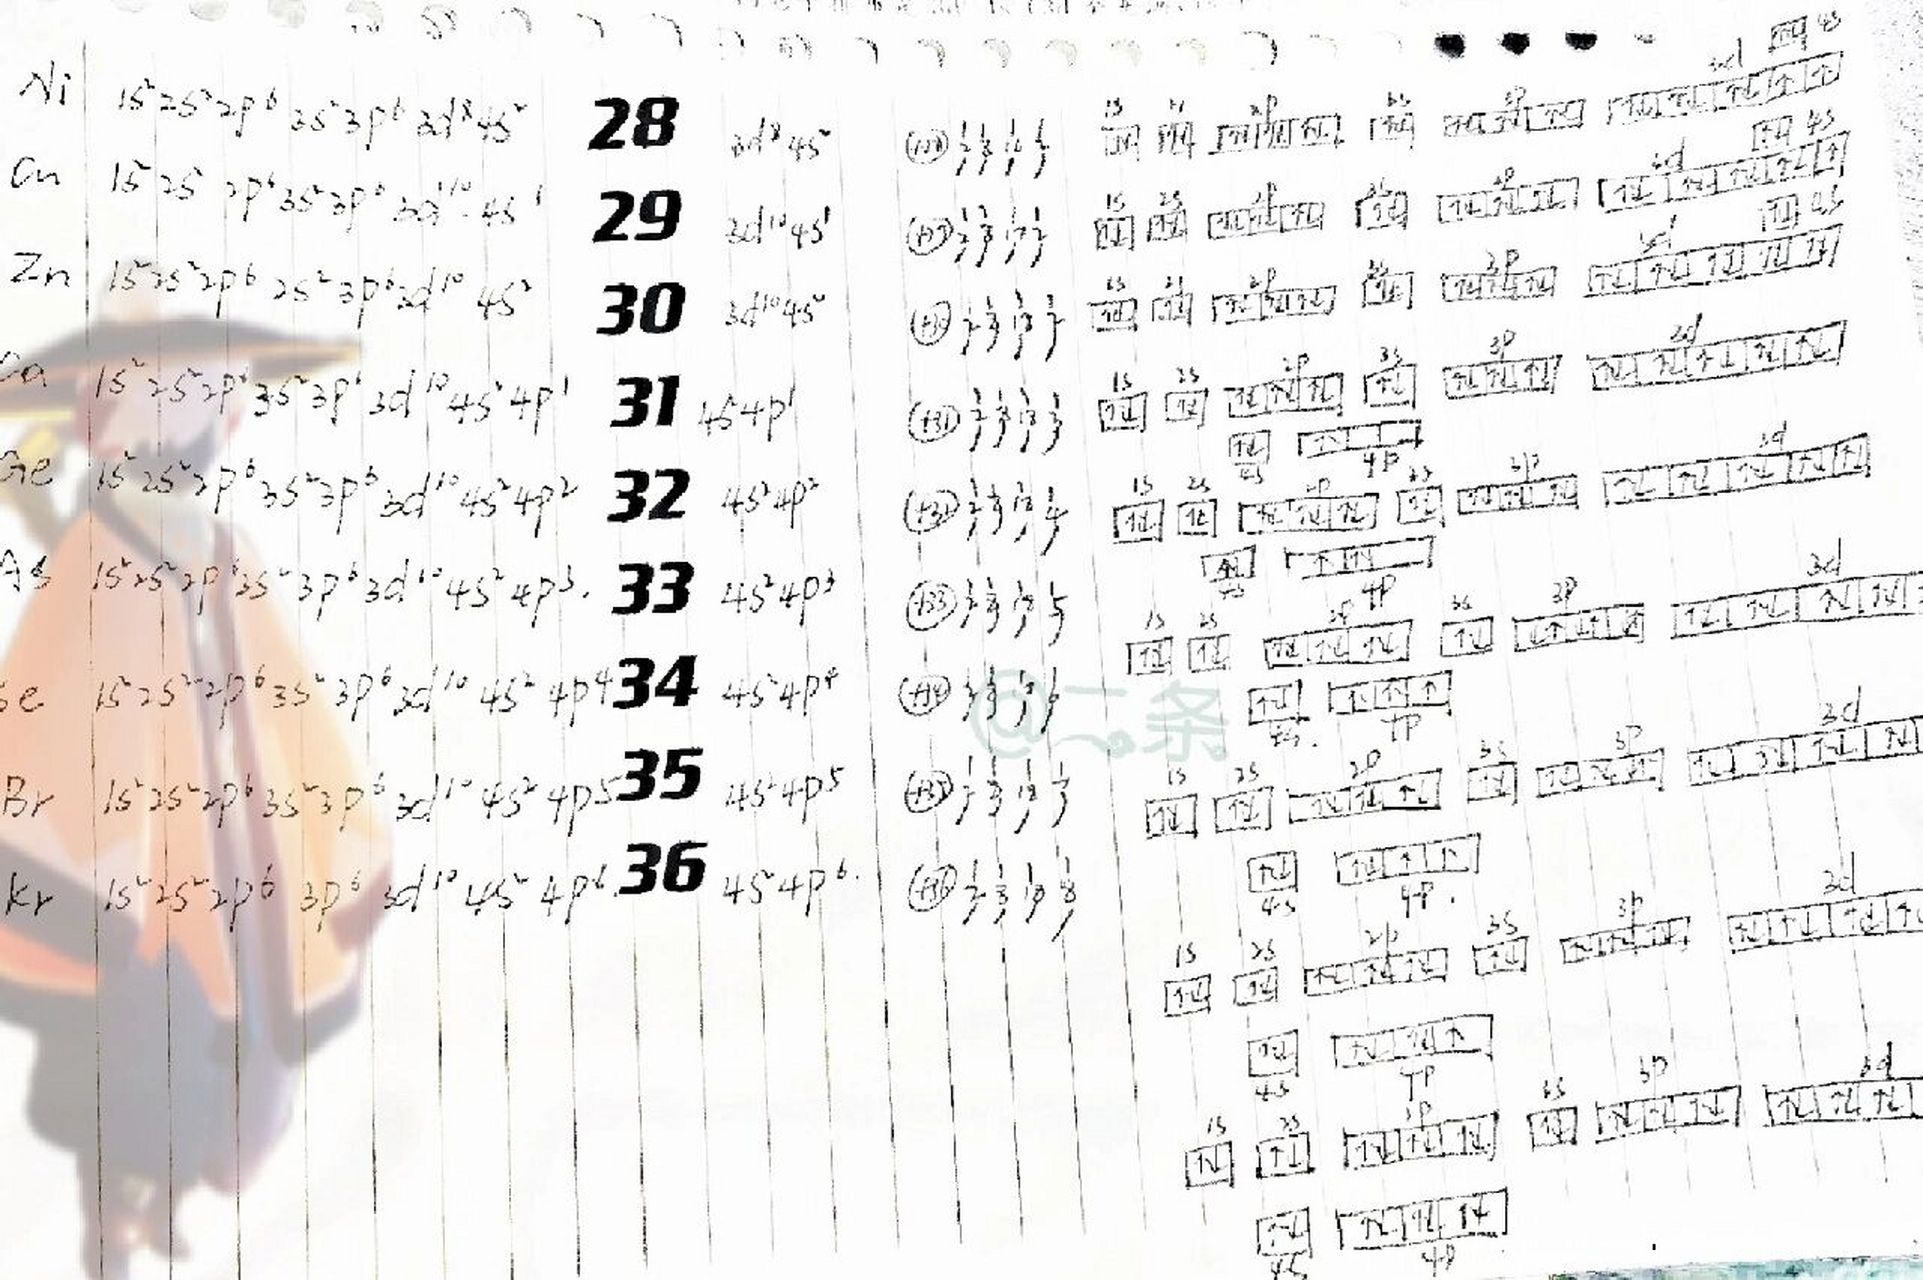 Ni 1s²2s²2p⁶3s²3p⁶3d⁸4s² 28 3d⁸4s²
Cu 1s²2s 2p⁶3s²3p⁶3d¹⁰4s¹ 29 3d¹⁰4s¹
Zn 1s²2s²2p⁶ 2s²3p⁶3d¹⁰ 4s² 30 3d¹⁰4s²
1s²2s²2p⁶3s²3p⁶3d¹⁰4s²4p¹ 31 4s²4p¹ +31
Ge 1s²2s²2p⁶3s²3p⁶3d¹⁰4s²4p² 32 4s²4p² +32
As 1s²2s²2p⁶3s²3p⁶3d¹⁰4s²4p³. 33 4s²4p³ +33
Se 1s²2s²2p⁶3s²3p⁶3d¹⁰4s²4p⁴ 34 4s²4p⁴
@二条
Br 1s²2s²2p⁶3s²3p⁶3d¹⁰4s²4p⁵ 35 4s²4p⁵
Kr 1s²2s²2p⁶ 3p⁶3d¹⁰4s²4p⁶ 36 4s²4p⁶.
1s 2s 2p 3s 3p 3d 4s
1s 2s 2p 3s 3p 3d 4s
1s 2s 2p 3s 3p 3d 4s
1s 2s 2p 3s 3p 3d
4s 4p
1s 2s 2p 3s 3p 3d
4s 4p
1s 2s 2p 3s 3p 3d
4s. 4p
1s 2s 2p 3s 3p 3d
4s 4p.
1s 2s 2p 3s 3p 3d
4s 4p
1s 2s 2p 3s 3p 3d
4s 4p